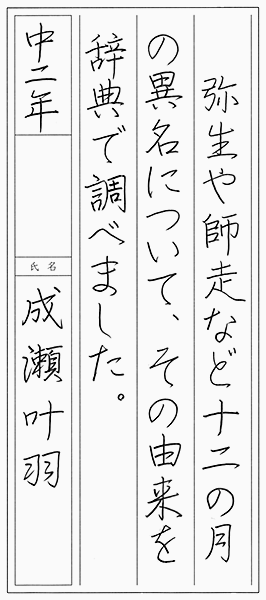 弥生や師走など十二の月
の異名について、その由来を
辞典で調べました。
中二年
氏名
成瀬叶羽